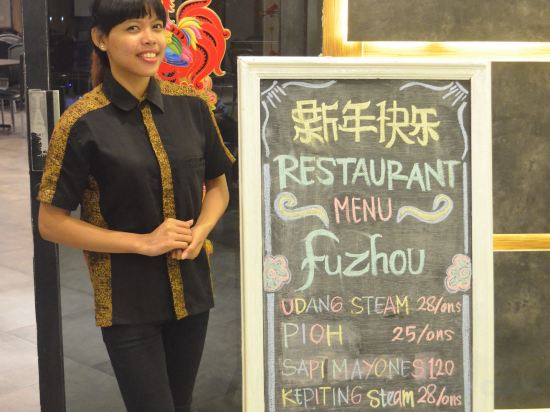 新年快乐
RESTAURANT
MENU
fuzhou
UDANG STEAM 28/ons
PIOH 25/ons
SAPI MAYONES 120
KEPITING Steam 28/ons